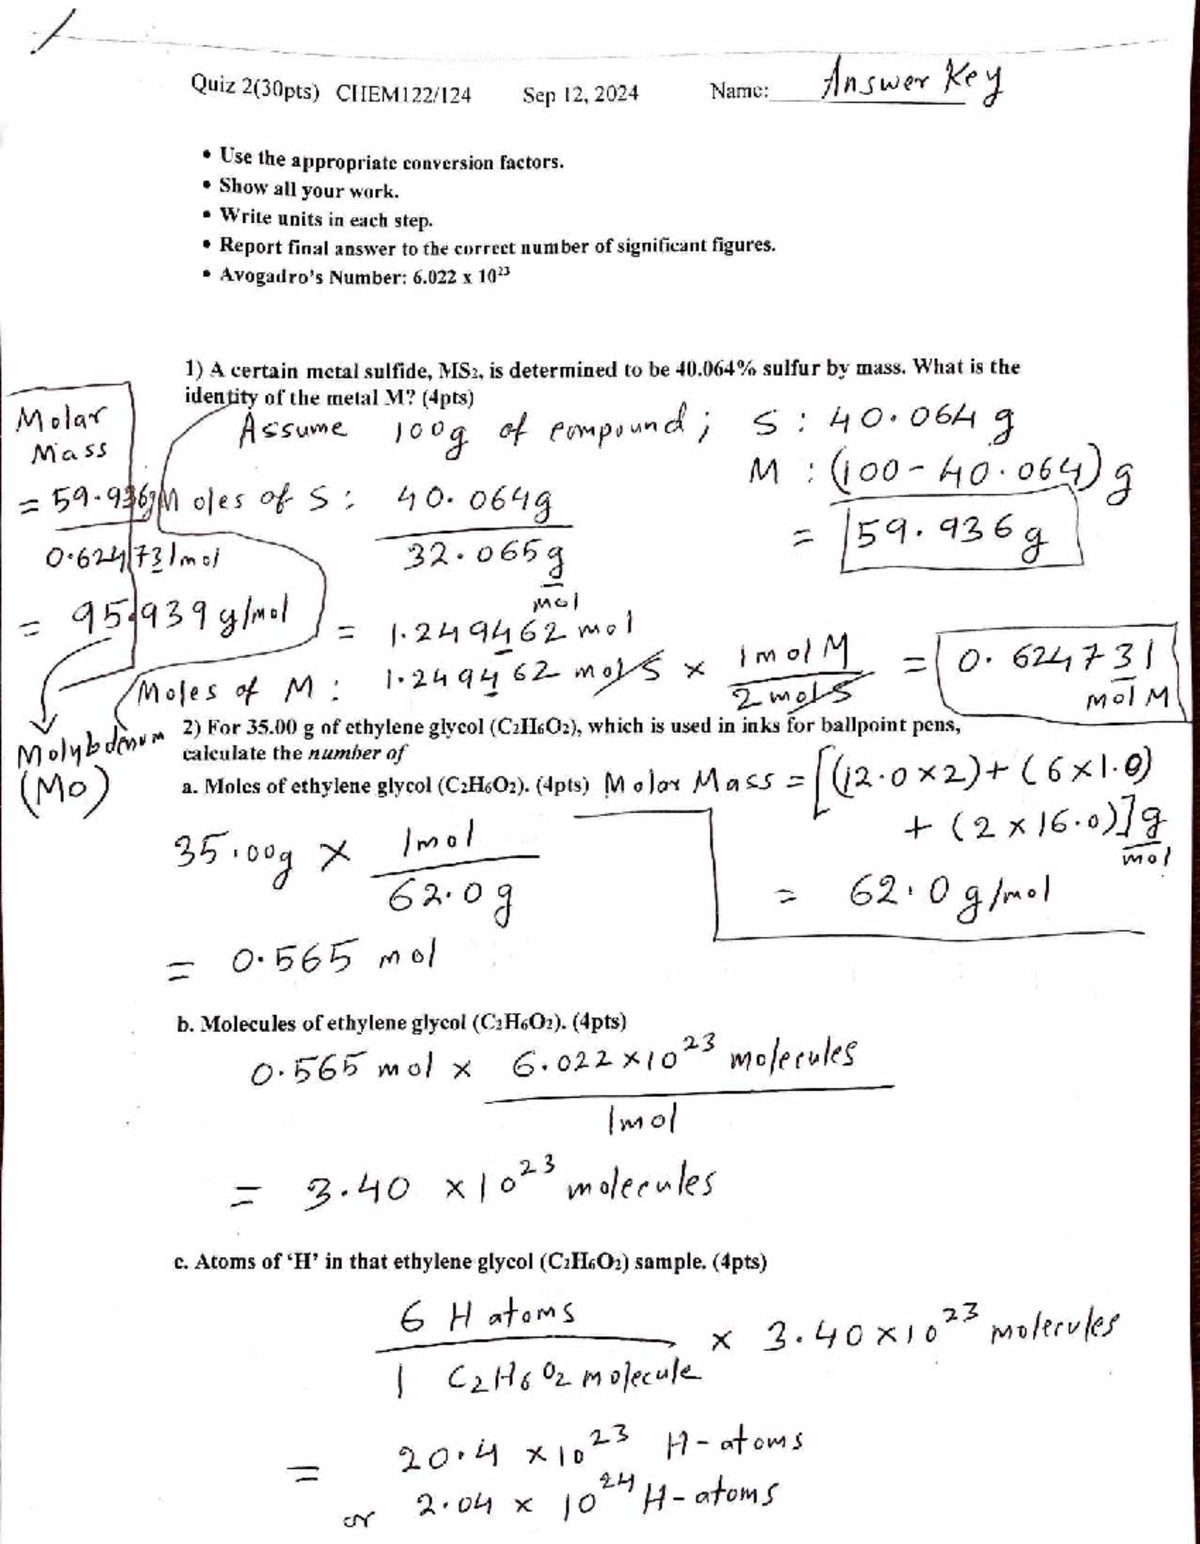 Quiz 2(30pts) CHEM122/124 Sep 12, 2024 Name: Answer Key
• Use the appropriate conversion factors.
• Show all your work.
• Write units in each step.
• Report final answer to the correct number of significant figures.
• Avogadro's Number: 6.022 x 10²³
1) A certain metal sulfide, MS₂, is determined to be 40.064% sulfur by mass. What is the
identity of the metal M? (4pts)
Assume 100g of compound; S: 40.064 g
M: (100-40.064) g
= 59.936 g
Moles of S: 40.064g
32.065 g
mol
= 1.249462 mol
Moles of M: 1.249462 mol S × 1 mol M = 0.624731
2 mol S mol M
Molar
Mass
= 59.936g
0.624731mol
= 95.939 g/mol
Molybdenum
(Mo)
2) For 35.00 g of ethylene glycol (C₂H₆O₂), which is used in inks for ballpoint pens,
calculate the number of
a. Moles of ethylene glycol (C₂H₆O₂). (4pts) Molar Mass = [(12.0×2)+(6×1.0)
+ (2×16.0)] g
mol
= 62.0 g/mol
35.00g × 1mol
62.0 g
= 0.565 mol
b. Molecules of ethylene glycol (C₂H₆O₂). (4pts)
0.565 mol × 6.022×10²³ molecules
1mol
= 3.40 ×10²³ molecules
c. Atoms of 'H' in that ethylene glycol (C₂H₆O₂) sample. (4pts)
6 H atoms
1 C₂H₆O₂ molecule × 3.40×10²³ molecules
= 20.4 ×10²³ H-atoms
or 2.04 × 10²⁴ H-atoms